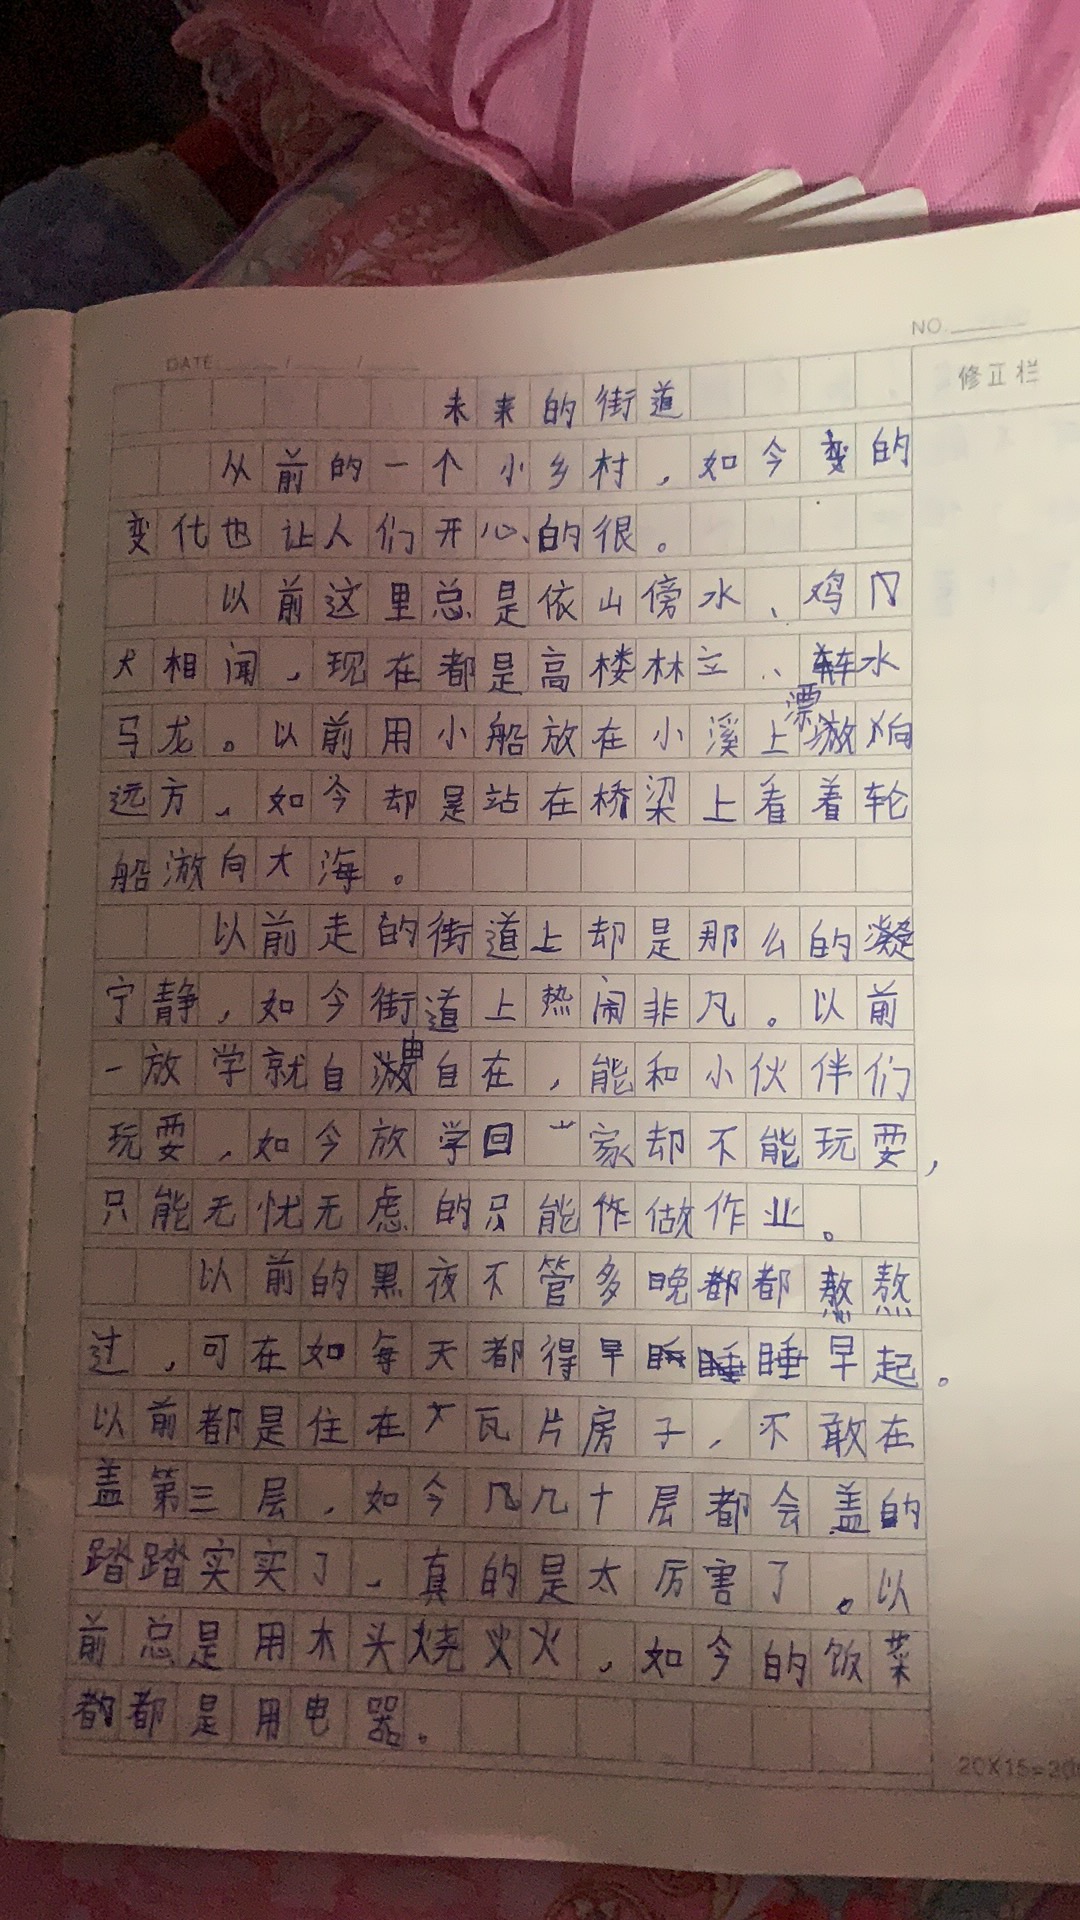 NO.
DATE / /
修正栏
未来的街道
从前的一个小乡村，如今变的
变化也让人们开心的很。
以前这里总是依山傍水、鸡
犬相闻，现在都是高楼林立、车水
马龙。以前用小船放在小溪上漂向
远方，如今却是站在桥梁上看着轮
船游向大海。
以前走的街道上却是那么的
宁静，如今街道上热闹非凡。以前
一放学就自由自在，能和小伙伴们
玩耍，如今放学回家却不能玩耍，
只能无忧无虑的只能作做作业。
以前的黑夜不管多晚都都熬熬
过，可在如每天都得早睡早起。
以前都是住在瓦片房子，不敢在
盖第三层，如今几几十层都会盖的
踏踏实实了，真的是太厉害了。以
前总是用木头烧火火，如今的饭菜
都都是用电器。
20X15=